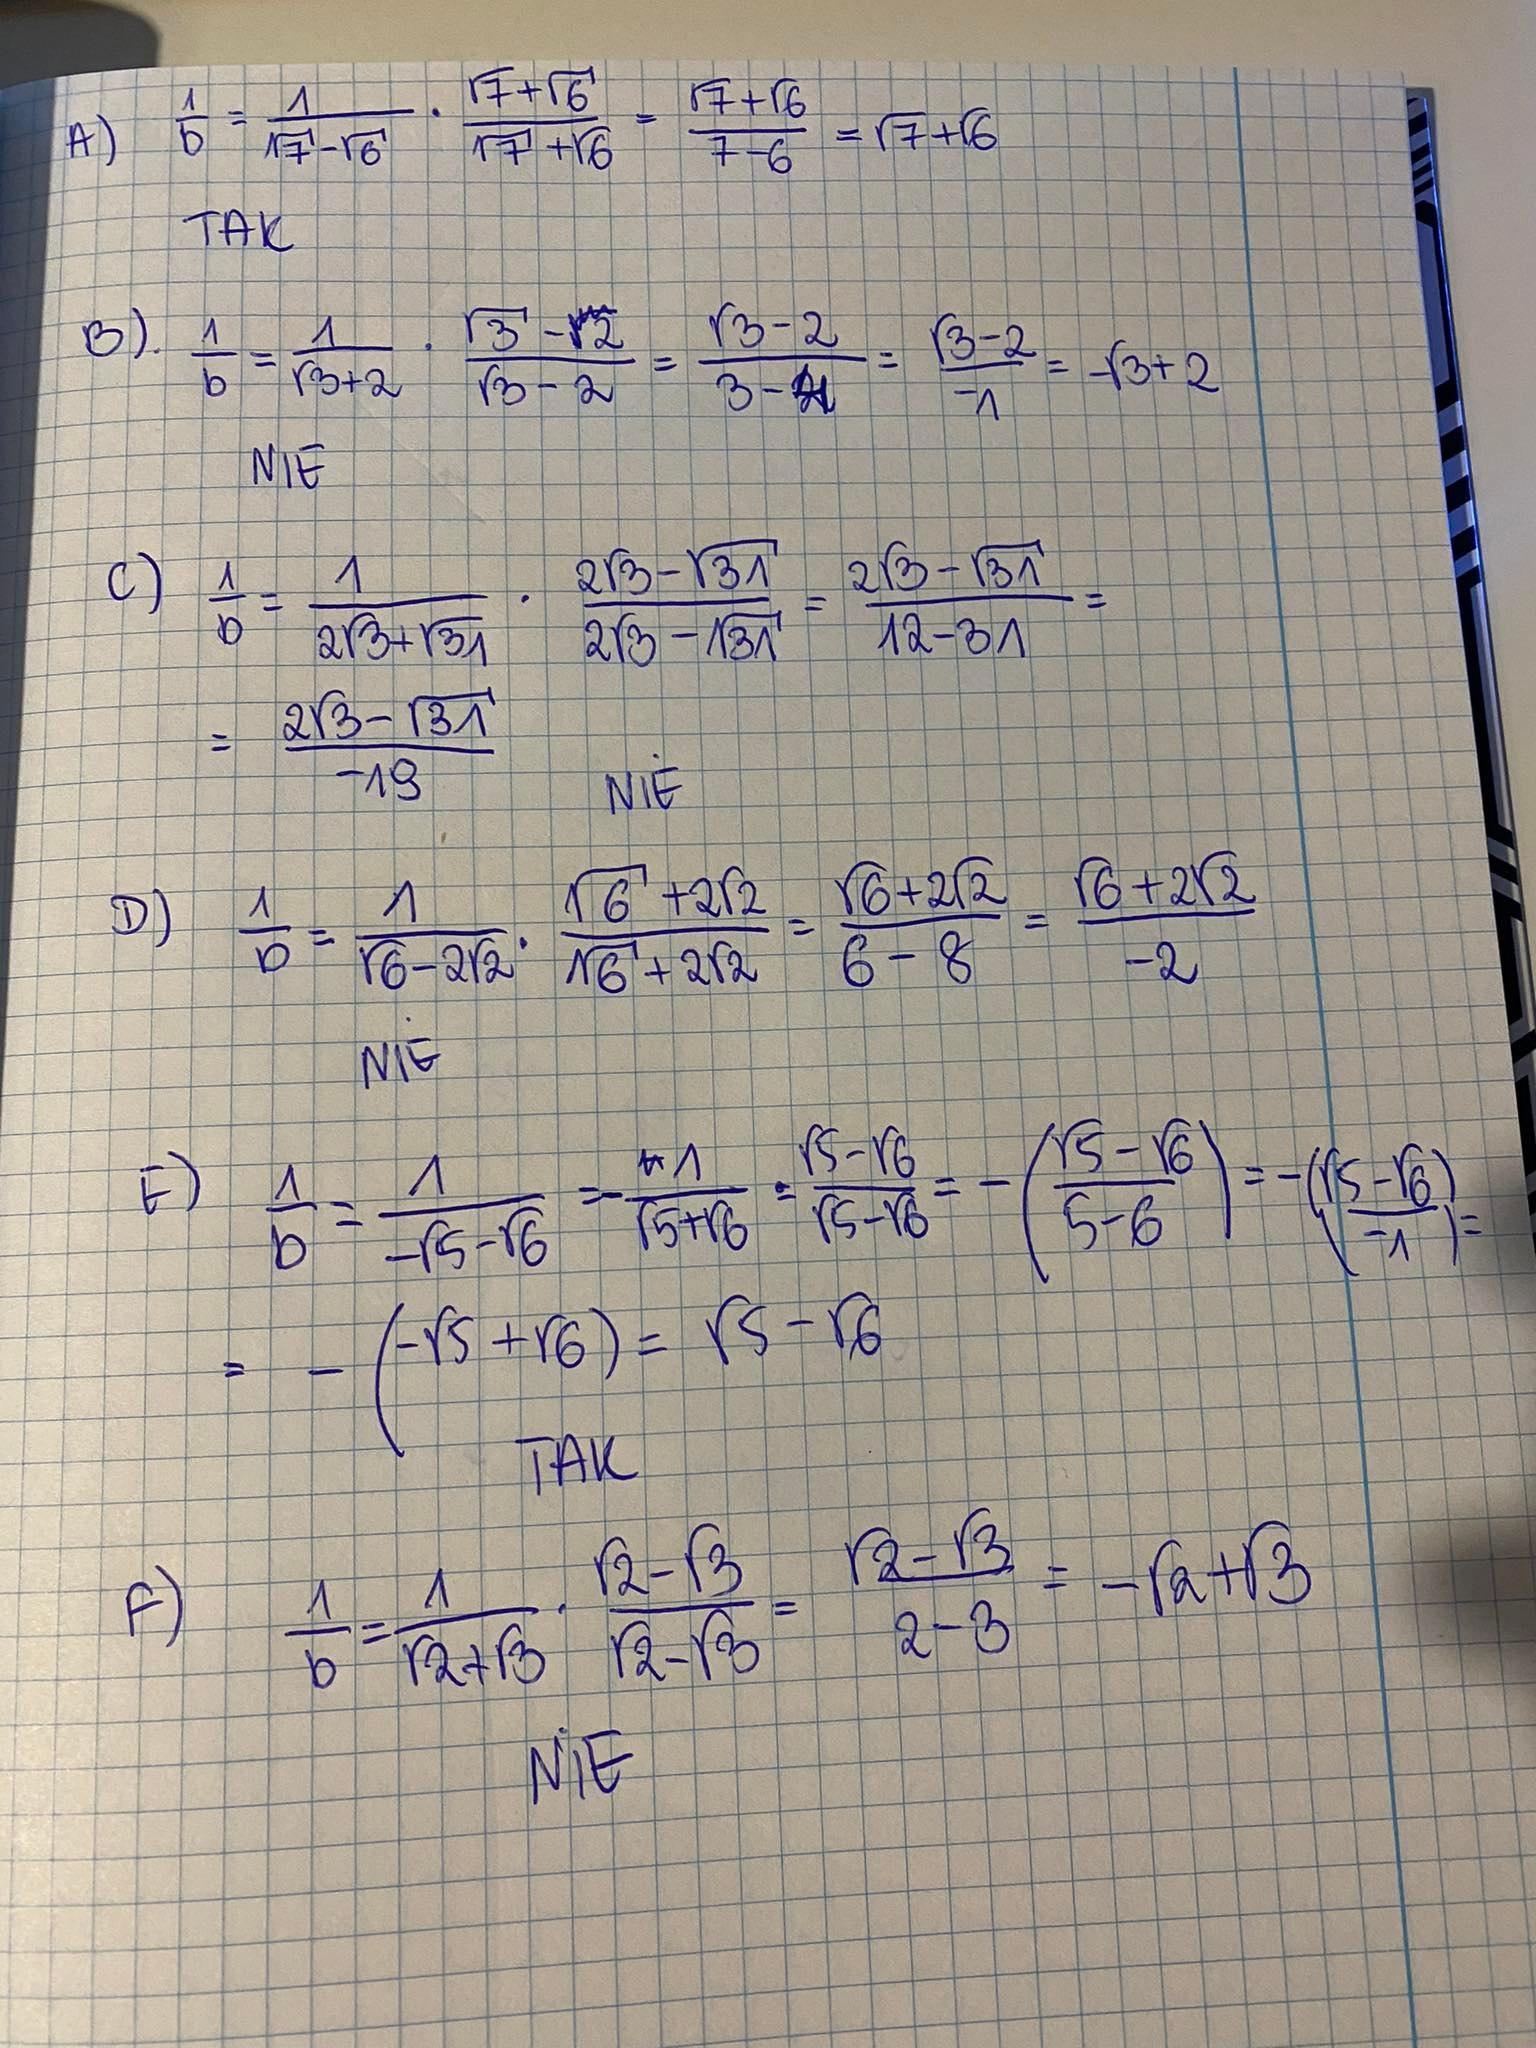 A) 1/b = 1/(√7-√6) · (√7+√6)/(√7+√6) = (√7+√6)/(7-6) = √7+√6
TAK
B). 1/b = 1/(√3+2) · (√3-2)/(√3-2) = (√3-2)/(3-4) = (√3-2)/-1 = -√3+2
NIE
C) 1/b = 1/(2√3+√31) · (2√3-√31)/(2√3-√31) = (2√3-√31)/(12-31) =
= (2√3-√31)/-19
NIE
D) 1/b = 1/(√6-2√2) · (√6+2√2)/(√6+2√2) = (√6+2√2)/(6-8) = (√6+2√2)/-2
NIE
E) 1/b = 1/(-√5-√6) = - 1/(√5+√6) · (√5-√6)/(√5-√6) = -((√5-√6)/(5-6)) = -((√5-√6)/-1) =
= -(-√5+√6) = √5-√6
TAK
F) 1/b = 1/(√2+√3) · (√2-√3)/(√2-√3) = (√2-√3)/(2-3) = -√2+√3
NIE